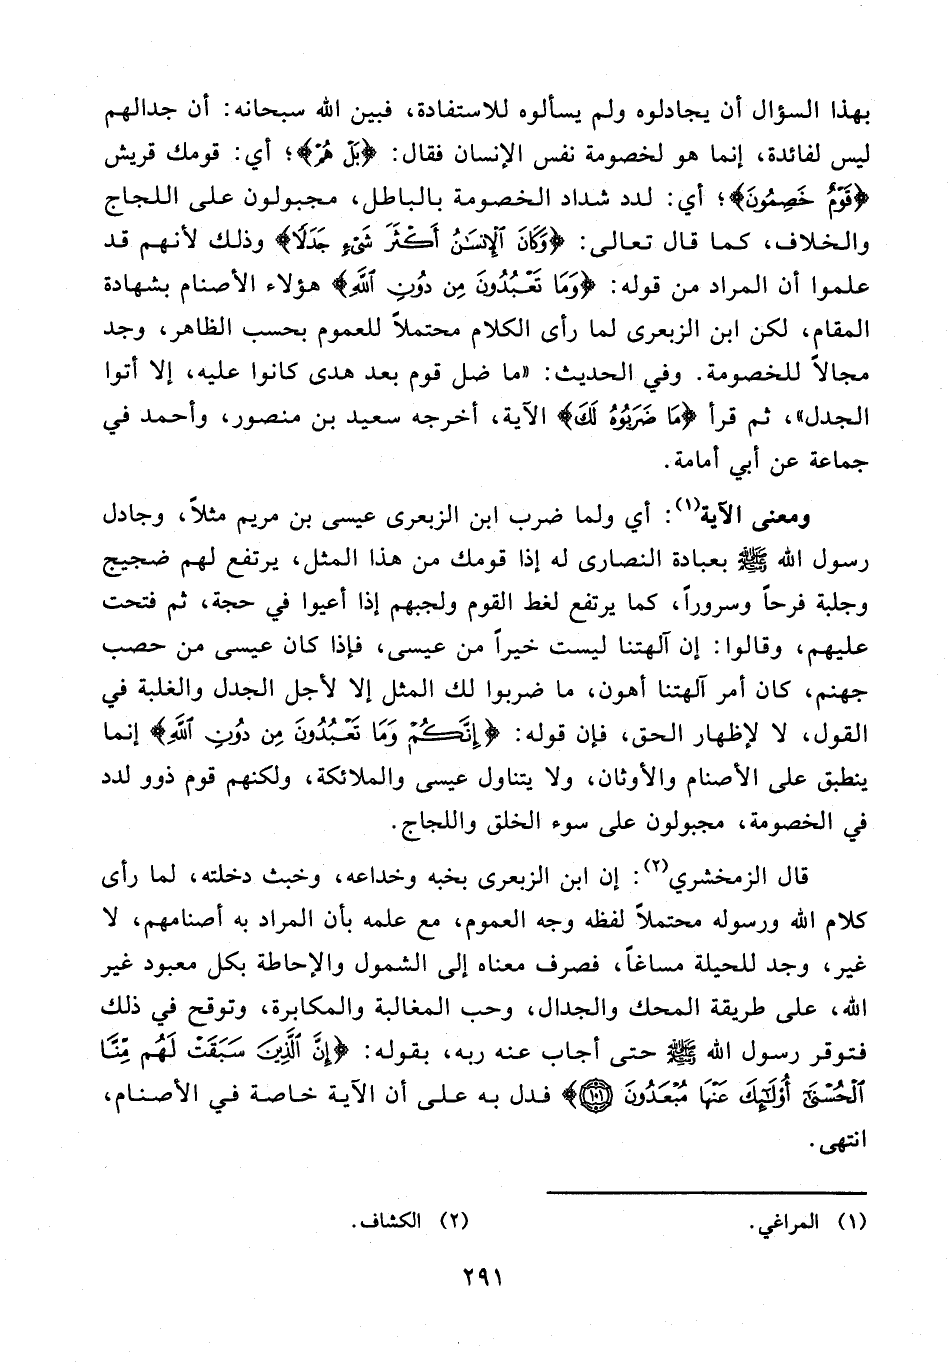 بهذا السؤال أن يجادلوه ولم يسألوه للاستفادة، فبين الله سبحانه: أن جدالهم
ليس لفائدة، إنما هو لخصومة نفس الإنسان فقال: ﴿بَلْ هُمْ﴾؛ أي: قومك قريش
﴿قَوْمٌ خَصِمُونَ﴾؛ أي: لدد شداد الخصومة بالباطل، مجبولون على اللجاج
والخلاف، كما قال تعالى: ﴿وَكَانَ ٱلْإِنسَٰنُ أَكْثَرَ شَىْءٍ جَدَلًا﴾ وذلك لأنهم قد
علموا أن المراد من قوله: ﴿وَمَا تَعْبُدُونَ مِن دُونِ ٱللَّهِ﴾ هؤلاء الأصنام بشهادة
المقام، لكن ابن الزبعرى لما رأى الكلام محتملاً للعموم بحسب الظاهر، وجد
مجالاً للخصومة. وفي الحديث: «ما ضل قوم بعد هدى كانوا عليه، إلا أتوا
الجدل»، ثم قرأ ﴿مَا ضَرَبُوهُ لَكَ﴾ الآية، أخرجه سعيد بن منصور، وأحمد في
جماعة عن أبي أمامة.
ومعنى الآية(١): أي ولما ضرب ابن الزبعرى عيسى بن مريم مثلاً، وجادل
رسول الله ﷺ بعبادة النصارى له إذا قومك من هذا المثل، يرتفع لهم ضجيج
وجلبة فرحاً وسروراً، كما يرتفع لغط القوم ولجبهم إذا أعيوا في حجة، ثم فتحت
عليهم، وقالوا: إن آلهتنا ليست خيراً من عيسى، فإذا كان عيسى من حصب
جهنم، كان أمر آلهتنا أهون، ما ضربوا لك المثل إلا لأجل الجدل والغلبة في
القول، لا لإظهار الحق، فإن قوله: ﴿إِنَّكُمْ وَمَا تَعْبُدُونَ مِن دُونِ ٱللَّهِ﴾ إنما
ينطبق على الأصنام والأوثان، ولا يتناول عيسى والملائكة، ولكنهم قوم ذوو لدد
في الخصومة، مجبولون على سوء الخلق واللجاج.
قال الزمخشري(٢): إن ابن الزبعرى بخبه وخداعه، وخبث دخلته، لما رأى
كلام الله ورسوله محتملاً لفظه وجه العموم، مع علمه بأن المراد به أصنامهم، لا
غير، وجد للحيلة مساغاً، فصرف معناه إلى الشمول والإحاطة بكل معبود غير
الله، على طريقة المحك والجدال، وحب المغالبة والمكابرة، وتوقح في ذلك
فتوقر رسول الله ﷺ حتى أجاب عنه ربه، بقوله: ﴿إِنَّ ٱلَّذِينَ سَبَقَتْ لَهُم مِّنَّا
ٱلْحُسْنَىٰٓ أُو۟لَٰٓئِكَ عَنْهَا مُبْعَدُونَ ١٠١﴾ فدل به على أن الآية خاصة في الأصنام،
انتهى.
(١) المراغي. (٢) الكشاف.
٢٩١